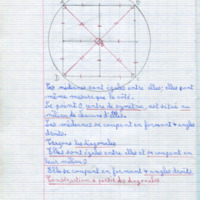 D
Les médianes sont égales entre elles; elles ont
même mesure que le côté.
Le point O centre de symétrie, est situé au
milieu de chacune d'elles.
Les médianes se coupent en formant 4 angles
droits.
Traçons les diagonales
Elles sont égales entre elles et se coupent en
leur milieu O
Elles se coupent en formant 4 angles droits
Construction à partir des diagonales